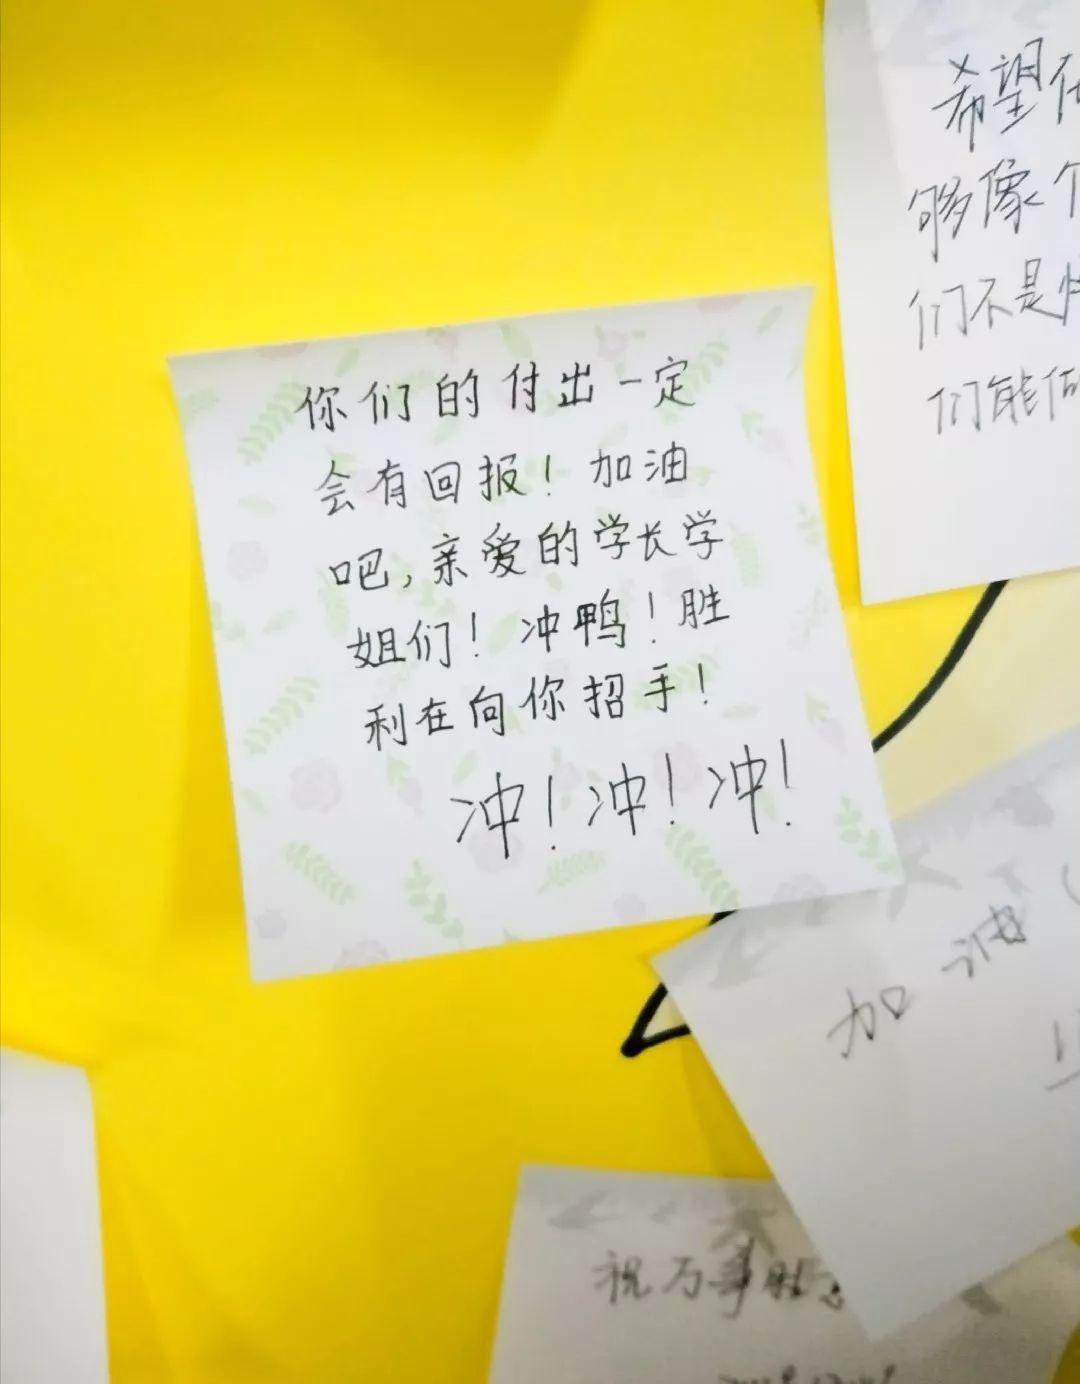 你们的付出一定
会有回报！加油
吧，亲爱的学长学
姐们！冲鸭！胜
利在向你招手！
冲！冲！冲！
希望
够像个
们不是
们能做
加油
祝万事胜意